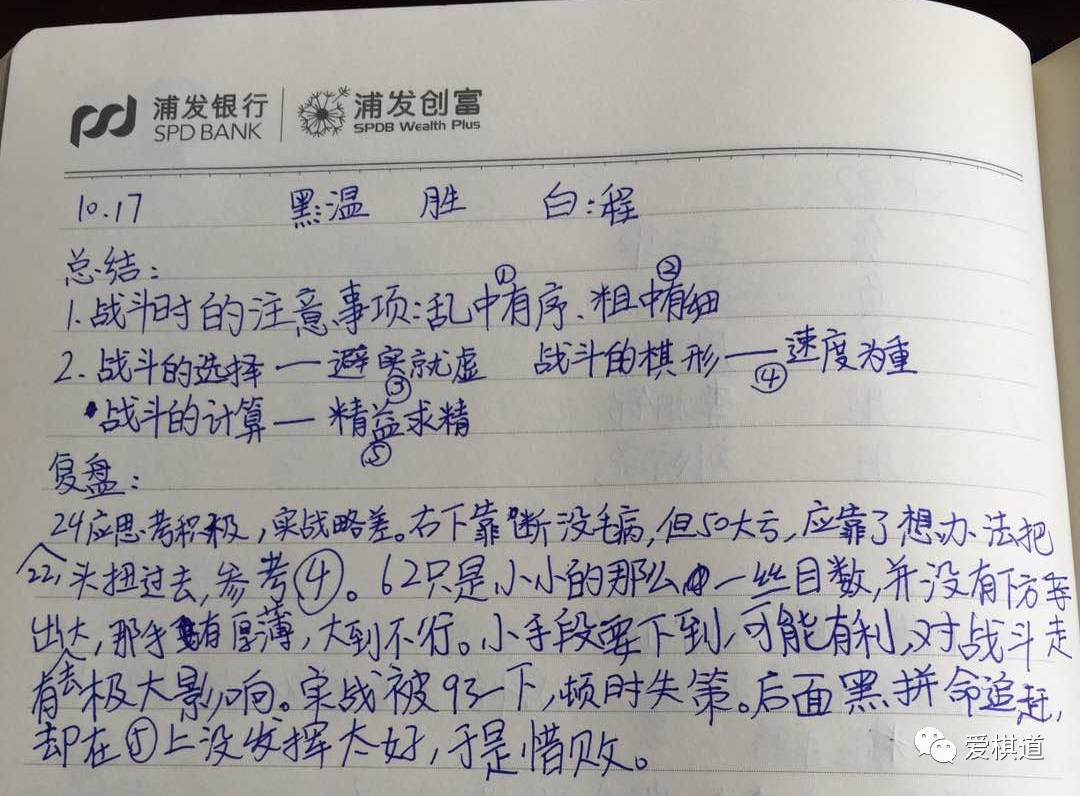 浦发银行 浦发创富
SPD BANK SPDB Wealth Plus
10.17 黑:温 胜 白:程
总结:
① ②
1.战斗时的注意事项:乱中有序、粗中有细
2.战斗的选择—避实就虚 战斗的棋形—速度为重
③ ④
战斗的计算—精益求精
⑤
复盘:
24应思考积极,实战略差。右下靠断没毛病,但50大亏,应靠了想办法把
22,头扭过去,参考④。62只是小小的那么一丝目数,并没有下方
出大,那手有厚薄,大到不行。小手段要下到,可能有利,对战斗走
有去极大影响。实战被93一下,顿时失策。后面黑拼命追赶,
却在⑤上没发挥太好,于是惜败。
爱棋道